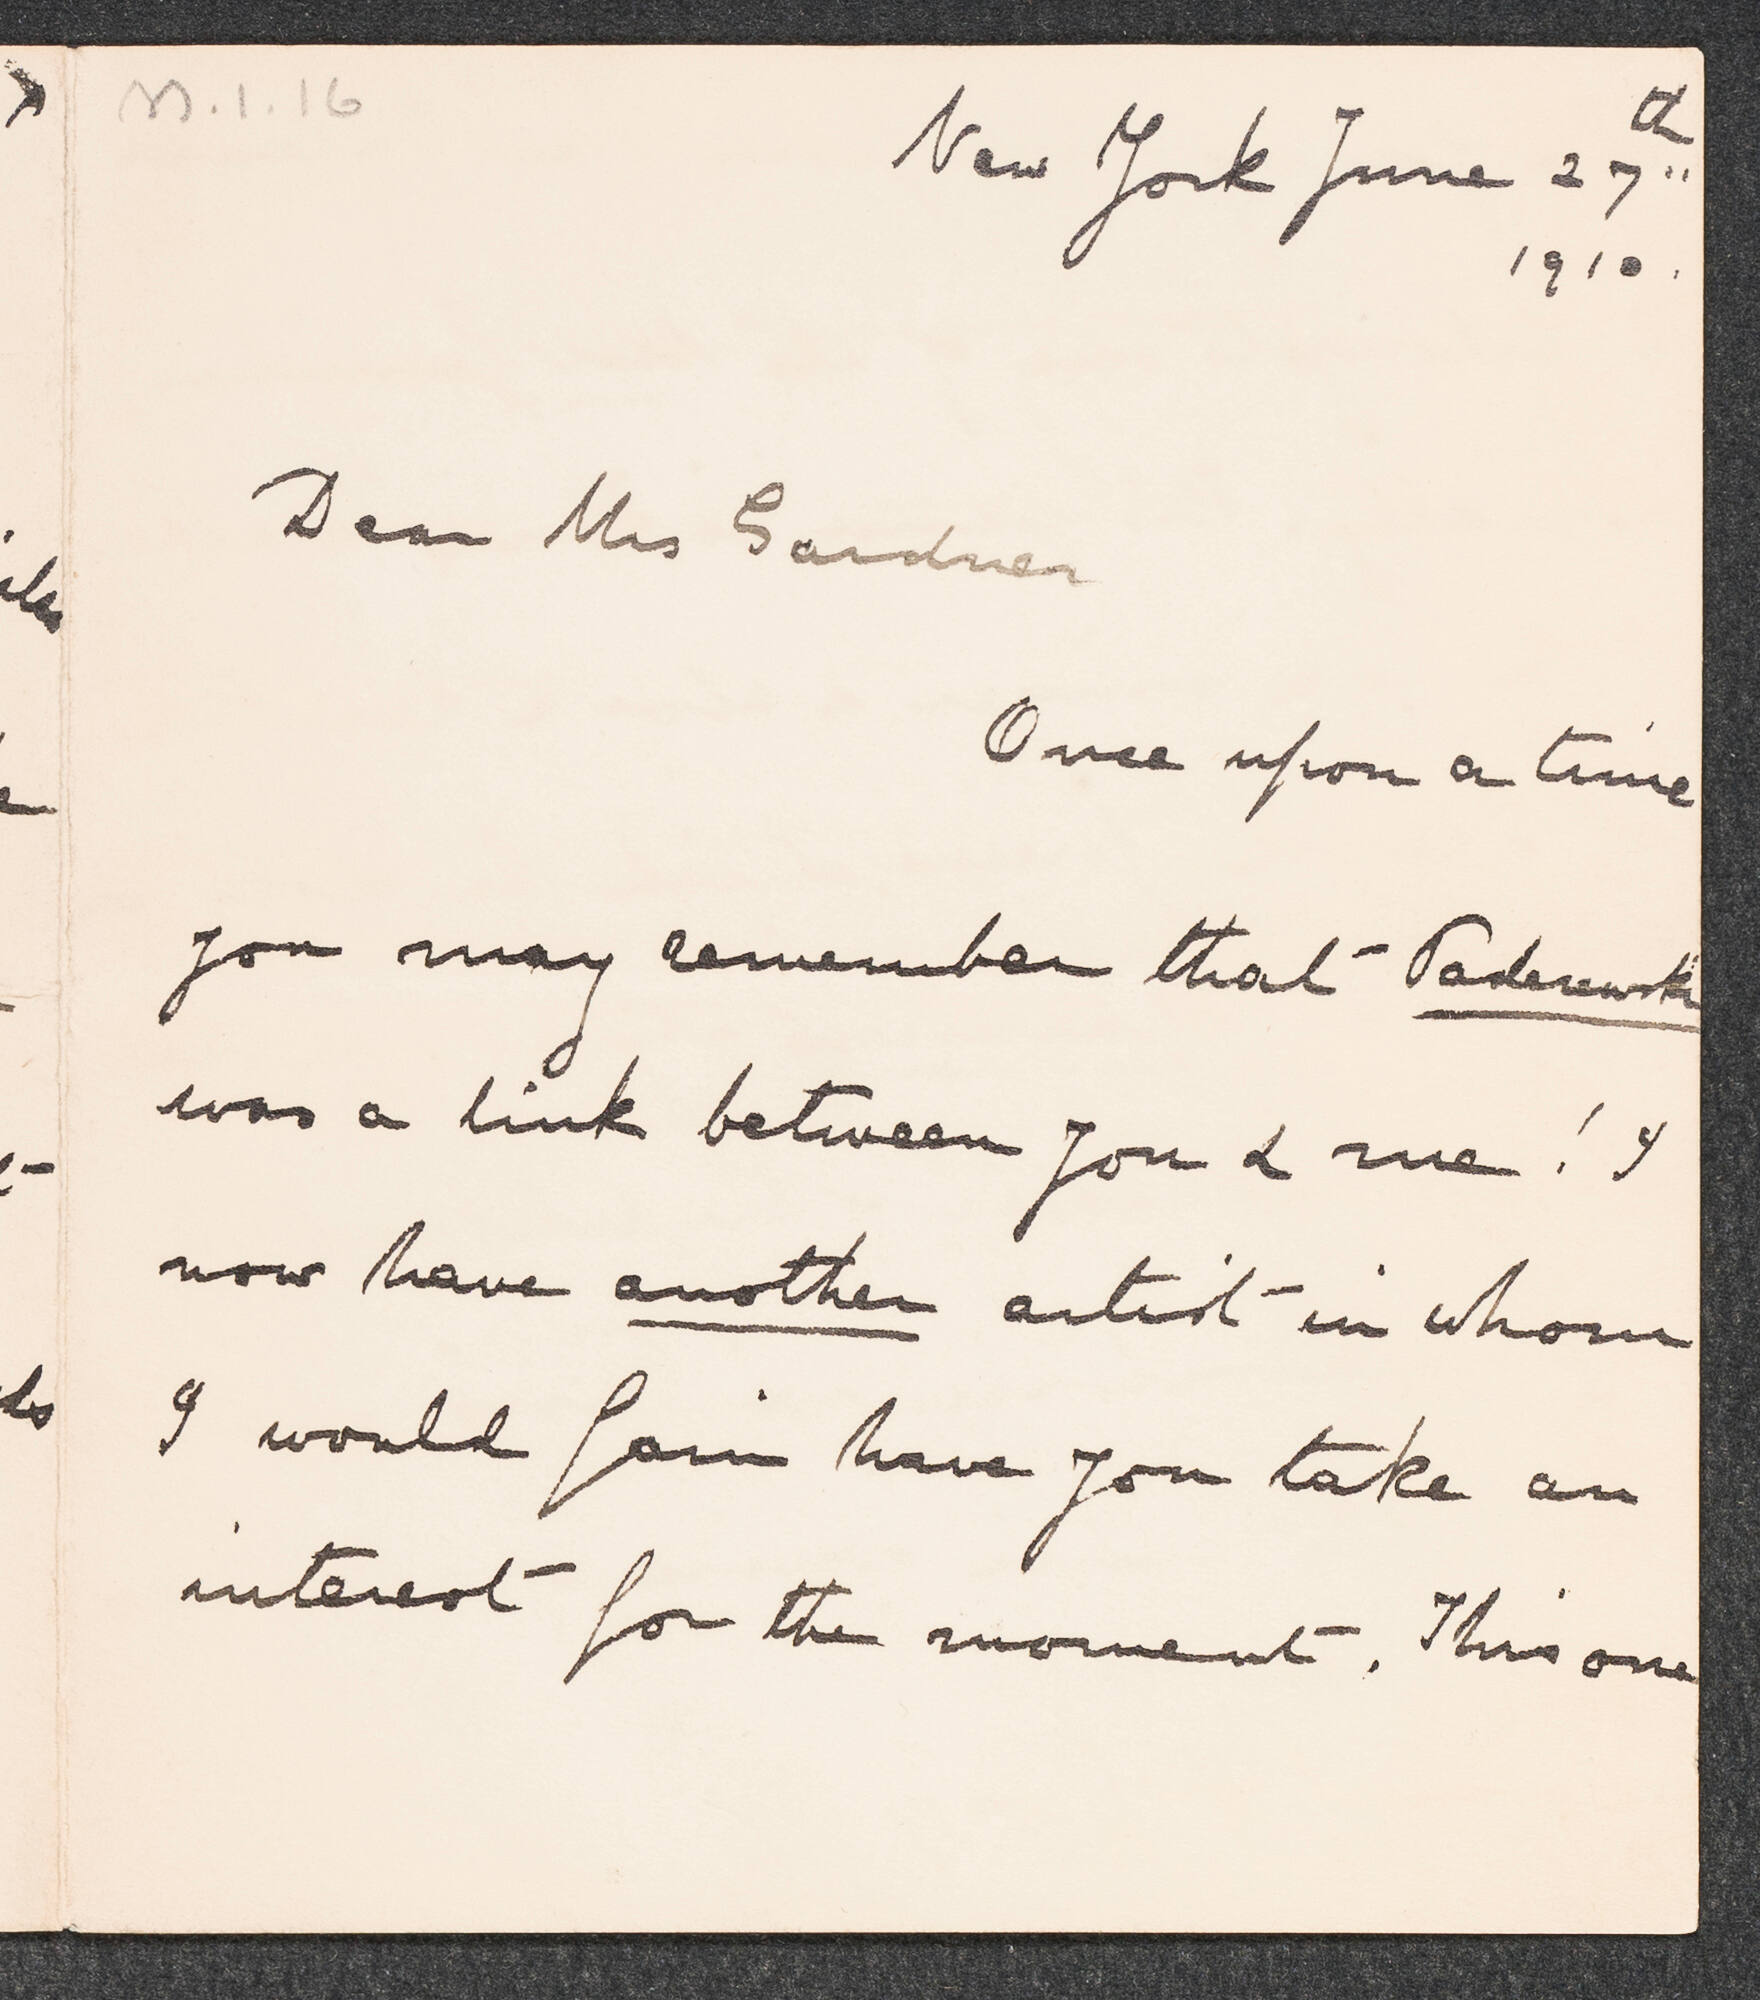 M.1.16
New York June 27th
1910.
Dear Mrs Gardner
Once upon a time
you may remember that Paderewski
was a link between you & me! I
now have another artist in whom
I would fain have you take an
interest for the moment. This one